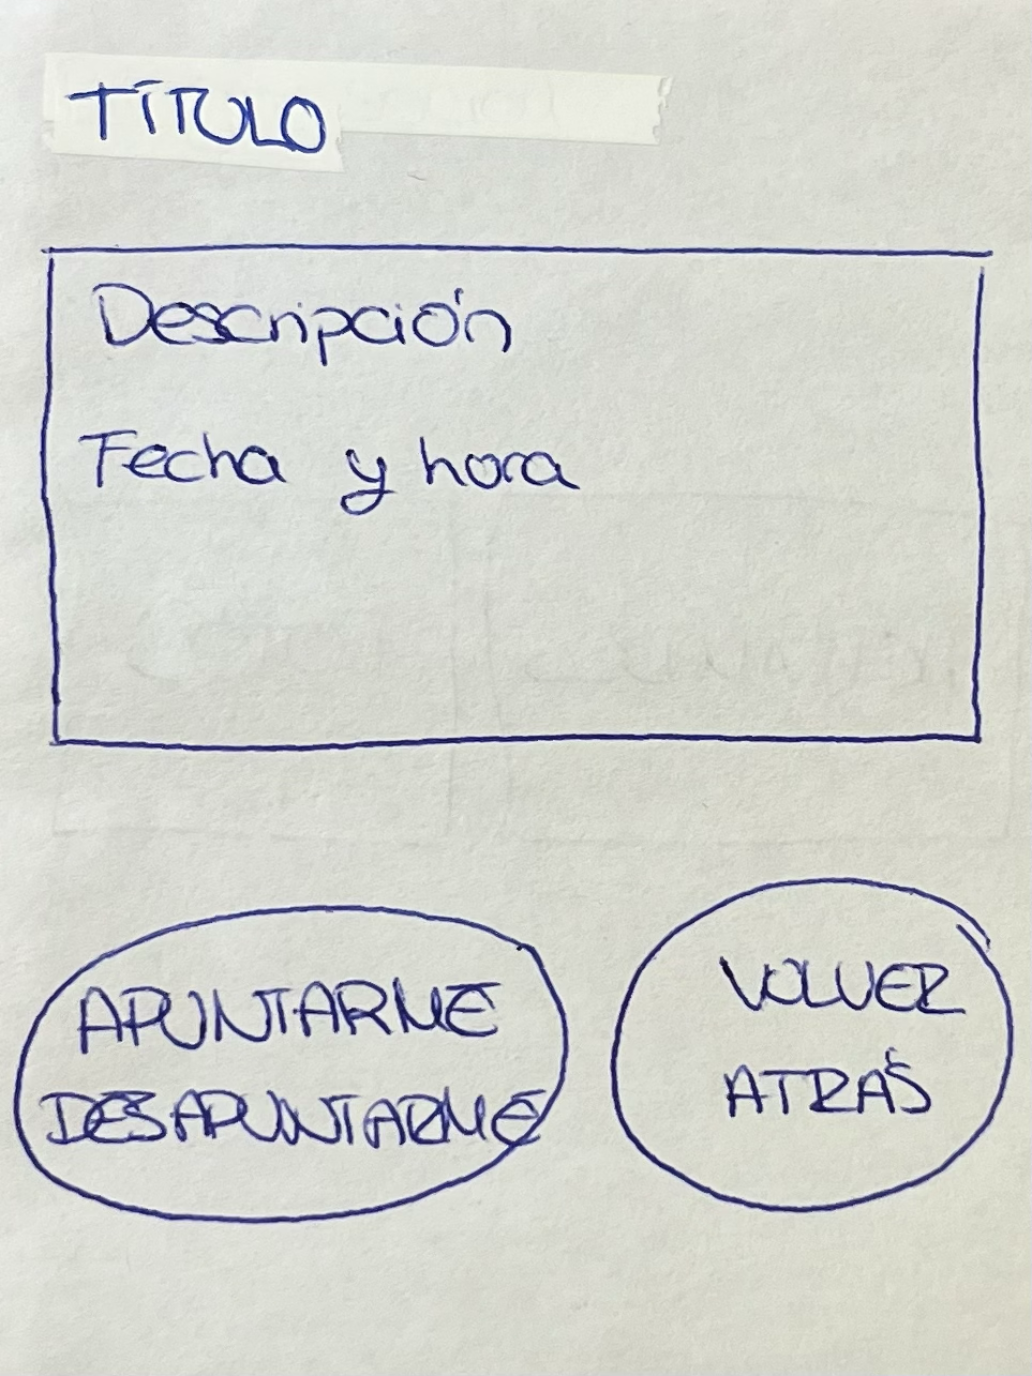 TÍTULO
Descripción
Fecha y hora
APUNTARME
DESAPUNTARME
VOLVER
ATRÁS